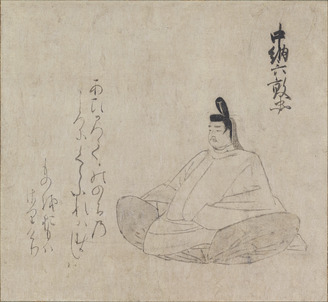 中納言敦忠
あひみてののちの
こゝろにくらふれはむかし
ものをおもは
さりけり